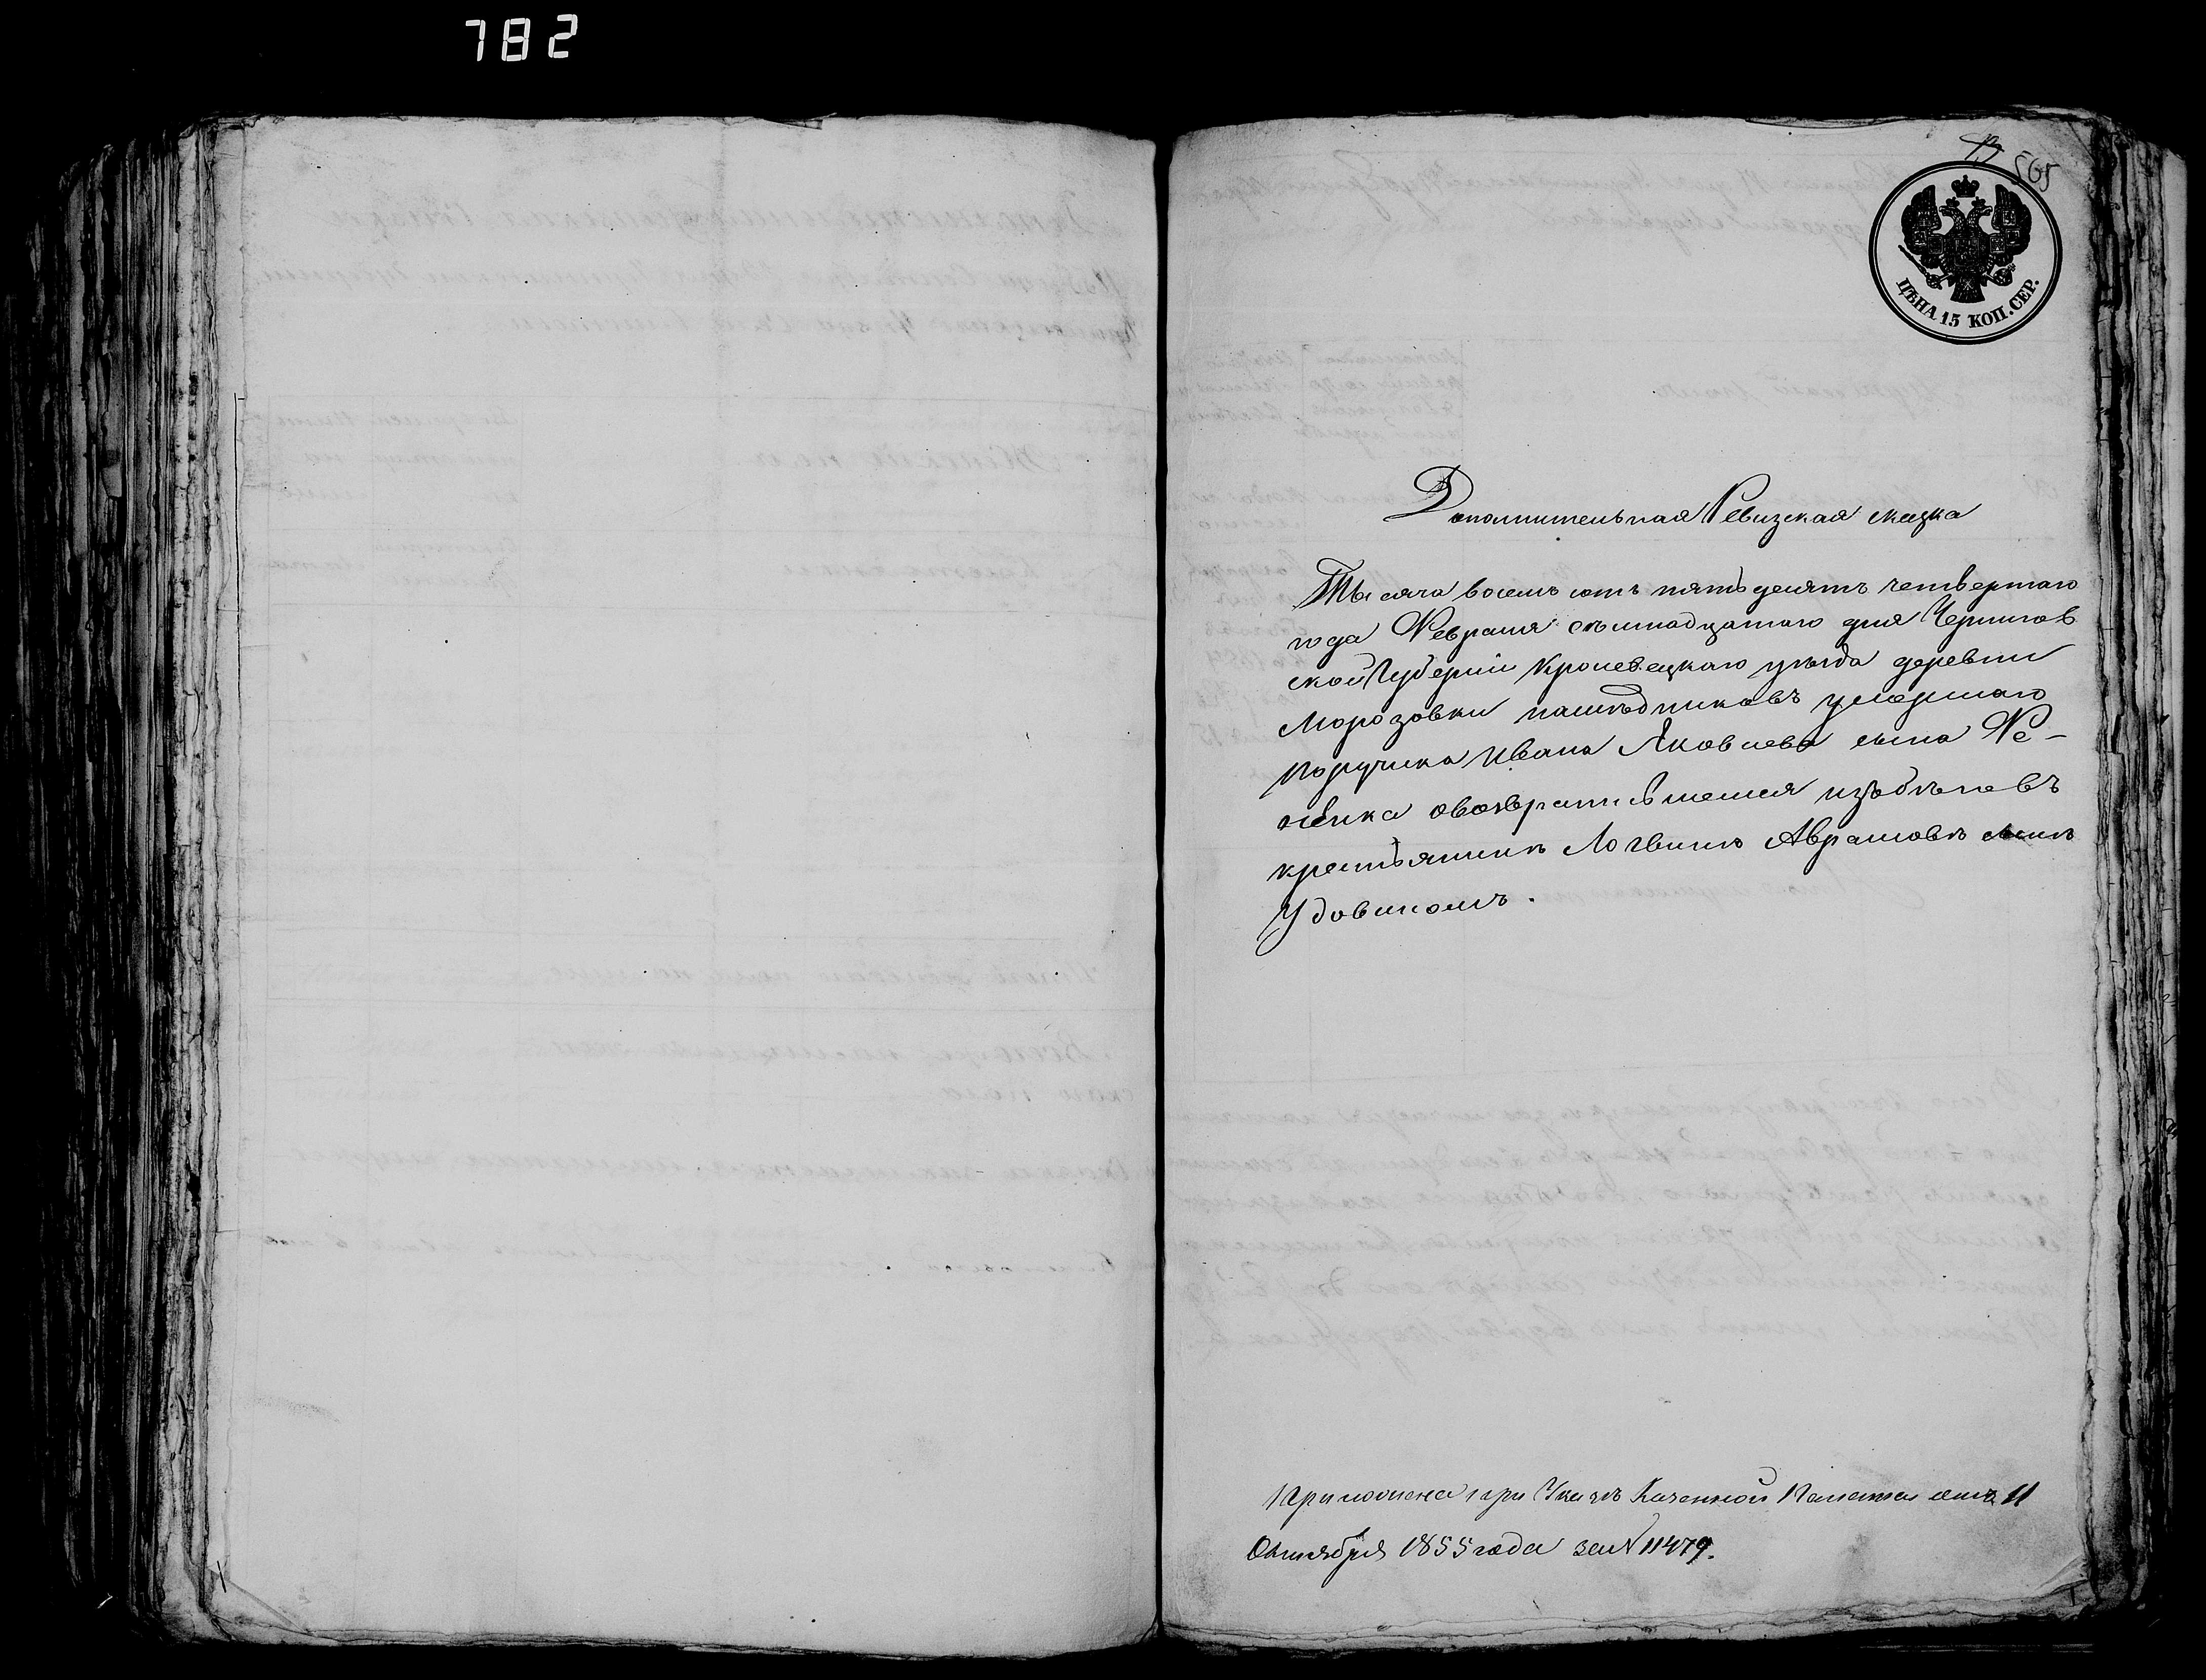 782
565
ЦѢНА 15 КОП. СЕР.
Дополнительная Ревизская сказка
Тысяча восемь сотъ пятьдесятъ четвертаго
года Февраля семнадцатаго дня Чернигов
ской Губерніи Кролевецкаго уѣзда деревни
Морозовки наслѣдниковъ умершаго
поручика Ивана Яковлева сына Ре-
овозвратившемся изъ бѣговъ
крестьянинѣ Логвинѣ Авраамовѣ сынѣ
Удовиномъ.
Приложена при Указѣ Казенной Палаты отъ 11
Октября 1855 года за № 11479.